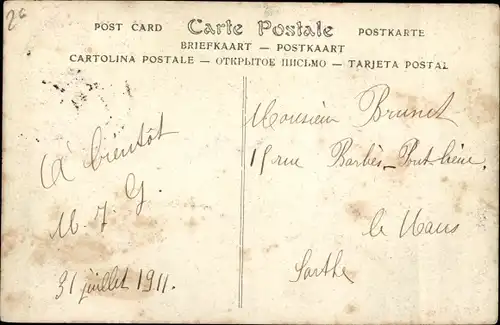 26
POST CARD Carte Postale POSTKARTE
BRIEFKAART — POSTKAART
CARTOLINA POSTALE — ОТКРЫТОЕ ПИСЬМО — TARJETA POSTAL
à bientôt
M. J. G.
31 juillet 1911.
Monsieur Brunet
15 rue Barbès-Pontlieue
le Mans
Sarthe